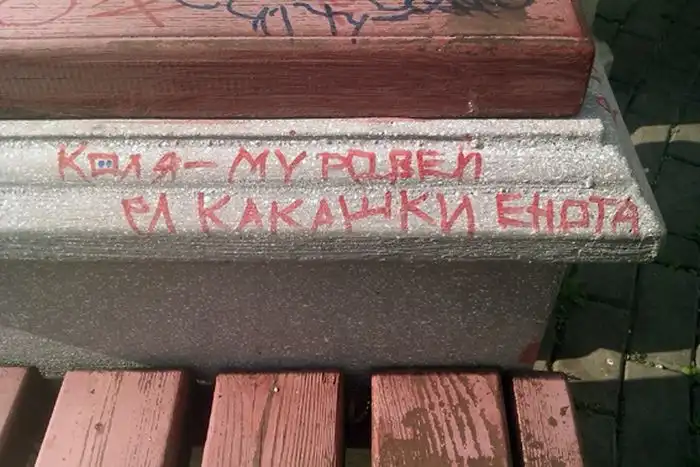 КОЛЯ - МУРОВЕЙ
ЕЛ КАКАШКИ ЕНОТА